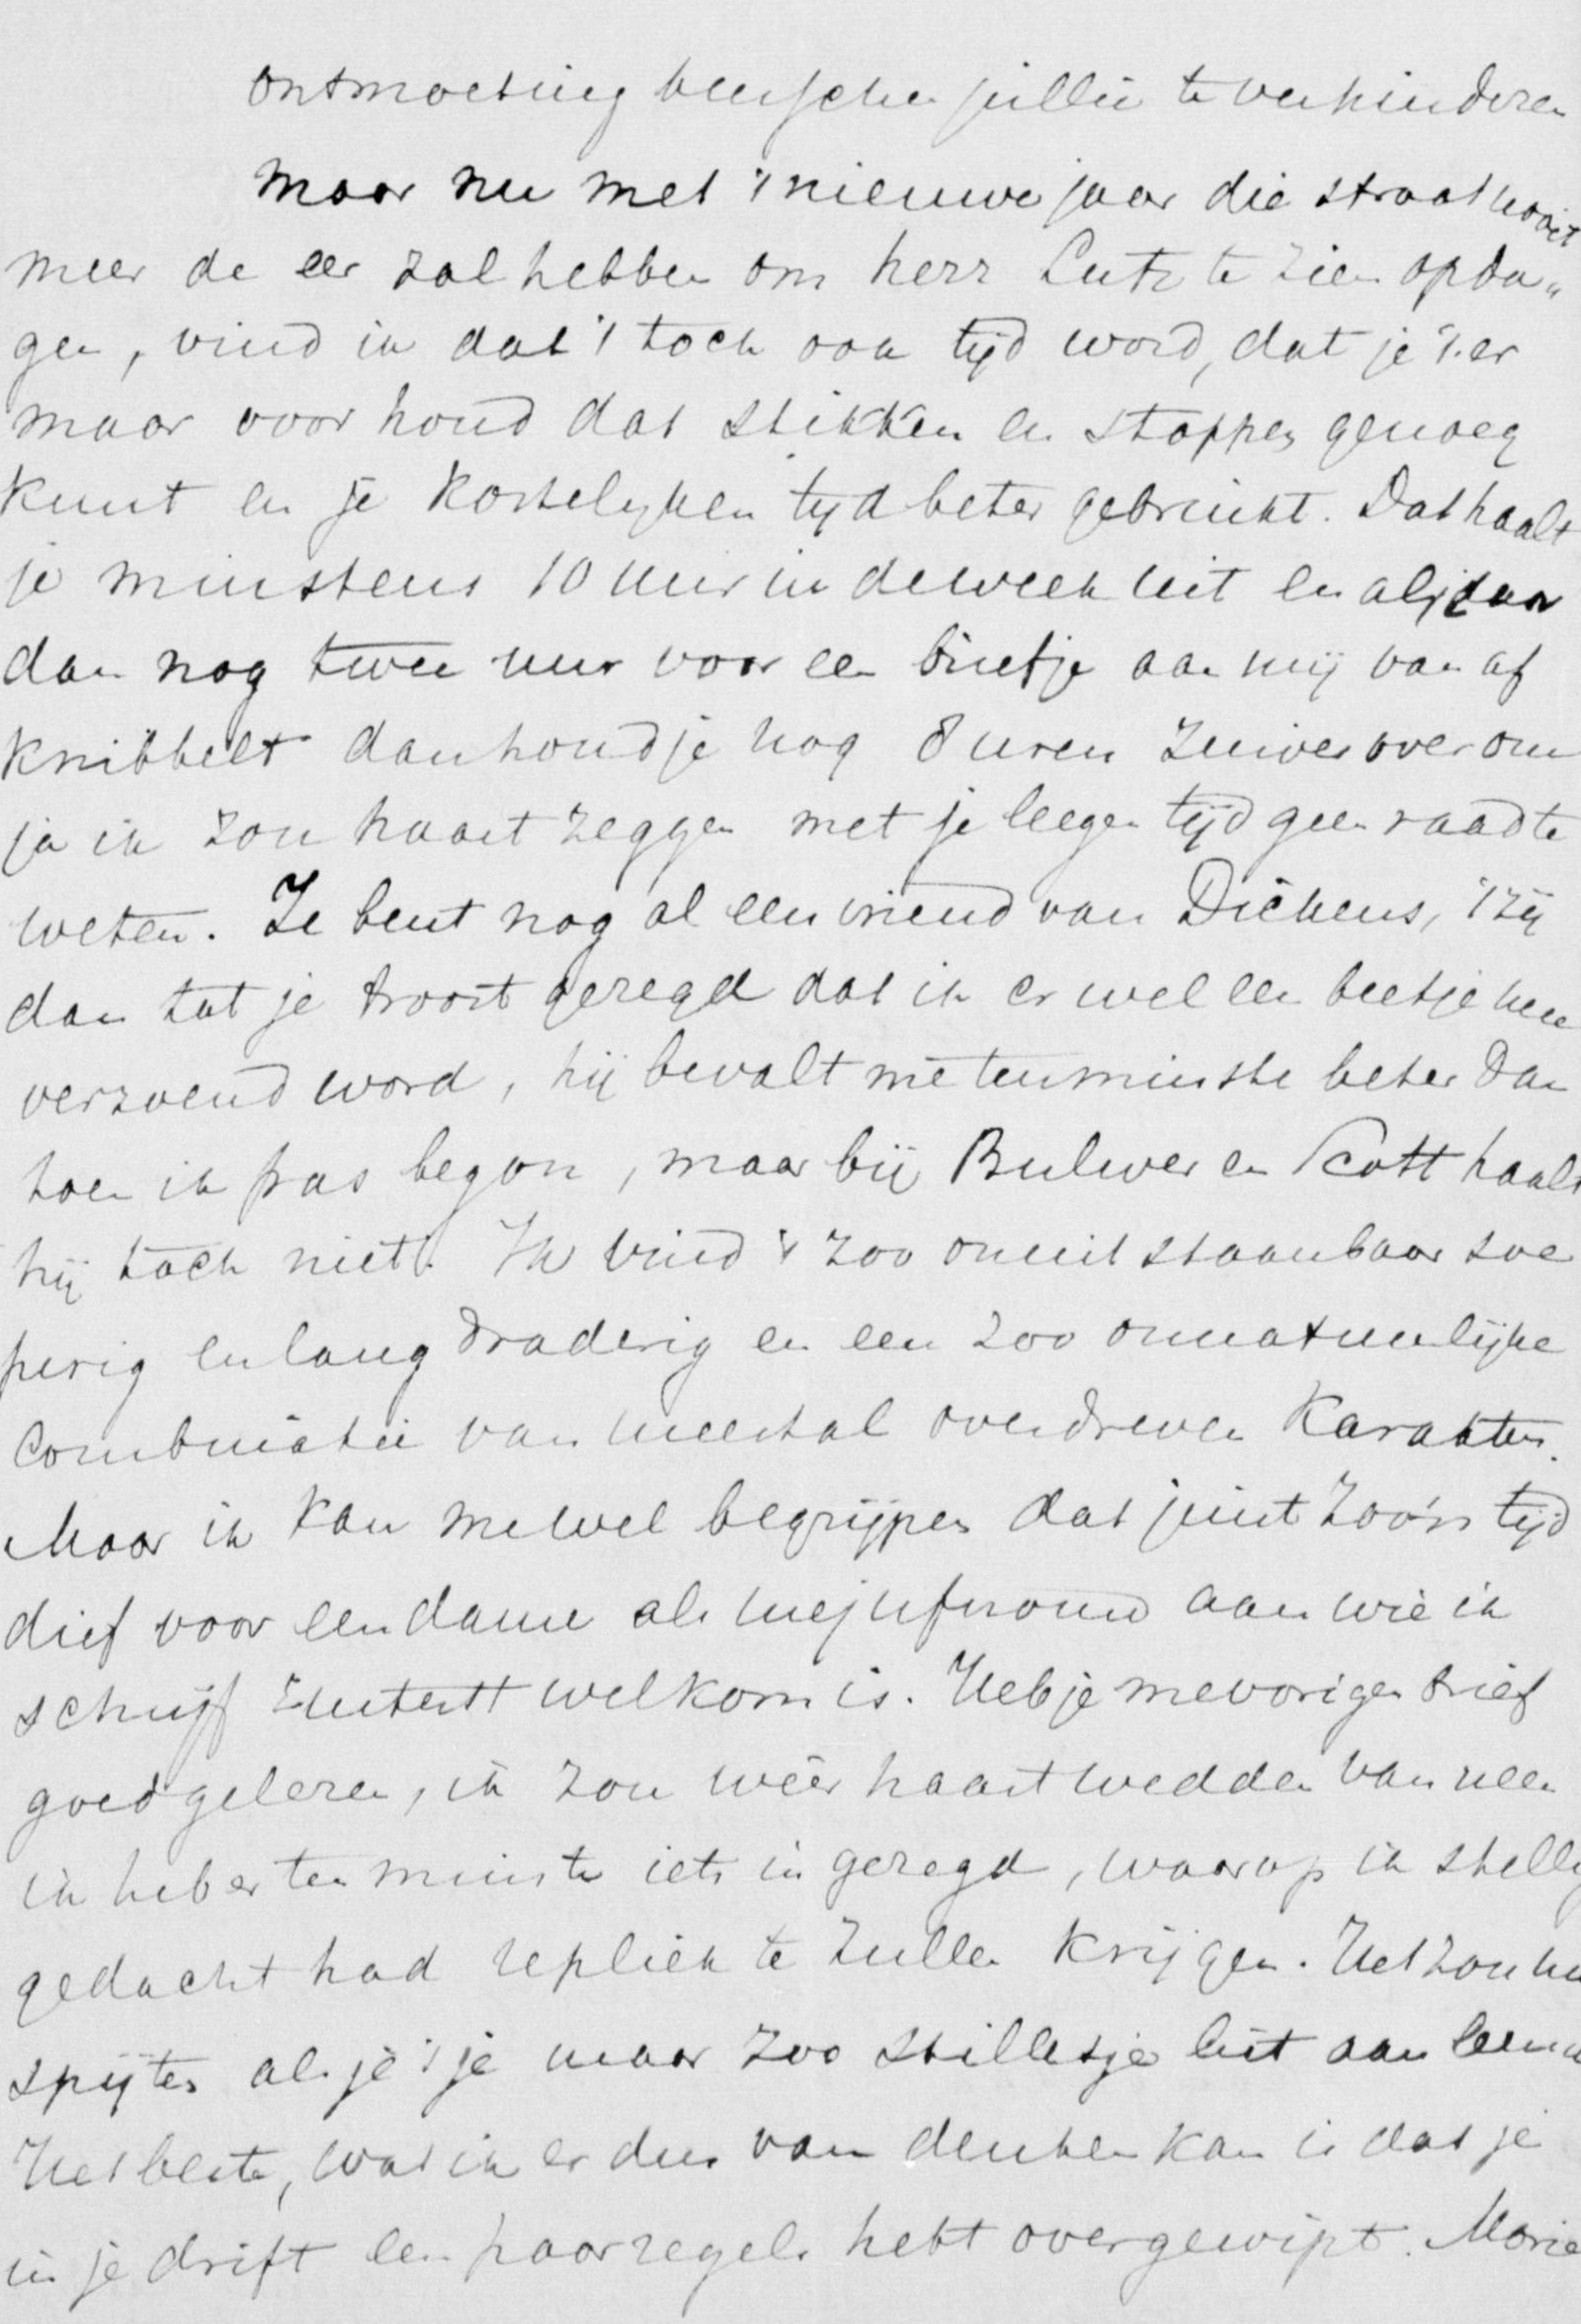 ontmoeting tusschen jullie te verhinderen
maar nu met 't nieuwe jaar die straat nooit
meer de eer zal hebben om herr Lutz te zien opda„
gen, vind ik dat 't toch ook tijd word, dat je 't er
maar voor houd dat stikken en stoppen genoeg
kunt en je kostelyken tyd beter gebruikt. Dat haalt
je minstens 10 uur in de week uit en als je daar
dan nog twee uur voor een briefje aan mij van af
knibbelt dan houd je nog 8 uren zuiver over om
ja ik zou haast zeggen met je leegen tijd geen raad te
weten. Je bent nog al een vriend van Dickens, 't zij
dan tot je troost gezegd dat ik er wel een beetje mee
verzoend word, hij bevalt me tenminste beter dan
toen ik pas begon, maar bij Bulwer en Scott haalt
hij toch niet. Ik vind 't zoo onuitstaanbaar soe
perig en lang draderig en een zoo onnatuurlijke
combinatie van meestal overdreven karakters.
Maar ik kan me wel begrijpen dat juist zoo'n tijd
dief voor een dame als mejufvrouw aan wie ik
schrijf welkom is. Heb je me vorigen brief
goed gelezen, ik zou wéér haast wedden van neen
ik heb er ten minste iets in gezegd, waarop ik stellig
gedacht had repliek te zullen krijgen. Het zou me
spijten als je 't je maar zoo stilletjes liet aanleunen
Het beste, wat ik er dus van denken kan is dat je
in je drift een paar regels hebt overgewipt. Marie